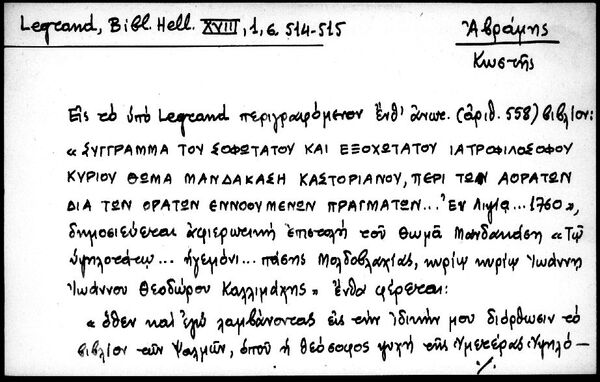 Legrand, Bibl. Hell. XVIII, 1, σ. 514-515
Ἀβράμης
Κωστῆς
Εἰς τὸ ὑπὸ Legrand περιγραφόμενον ἔνθ' ἄνωτ. (ἀριθ. 558) βιβλίον:
« ΣΥΓΓΡΑΜΜΑ ΤΟΥ ΣΟΦΩΤΑΤΟΥ ΚΑΙ ΕΞΟΧΩΤΑΤΟΥ ΙΑΤΡΟΦΙΛΟΣΟΦΟΥ
ΚΥΡΙΟΥ ΘΩΜΑ ΜΑΝΔΑΚΑΣΗ ΚΑΣΤΟΡΙΑΝΟΥ, ΠΕΡΙ ΤΩΝ ΑΟΡΑΤΩΝ
ΔΙΑ ΤΩΝ ΟΡΑΤΩΝ ΕΝΝΟΟΥΜΕΝΩΝ ΠΡΑΓΜΑΤΩΝ... Ἐν Λιψίᾳ... 1760»,
δημοσιεύεται ἀφιερωτικὴ ἐπιστολὴ τοῦ Θωμᾶ Μανδακάση «Τῷ
ὑψηλοτάτῳ... ἡγεμόνι... πάσης Μολδοβλαχίας, κυρίῳ κυρίῳ Ἰωάννῃ
Ἰωάννου Θεοδώρου Καλλιμάχῃ» ἔνθα φέρεται:
« ὅθεν καὶ ἐγὼ λαμβάνοντας εἰς τὴν ἰδικήν μου διόρθωσιν τὸ
βιβλίον τῶν Ψαλμῶν, ὁποῦ ἡ θεόσοφος ψυχὴ τῆς ἡμετέρας ὑψηλό-
./.